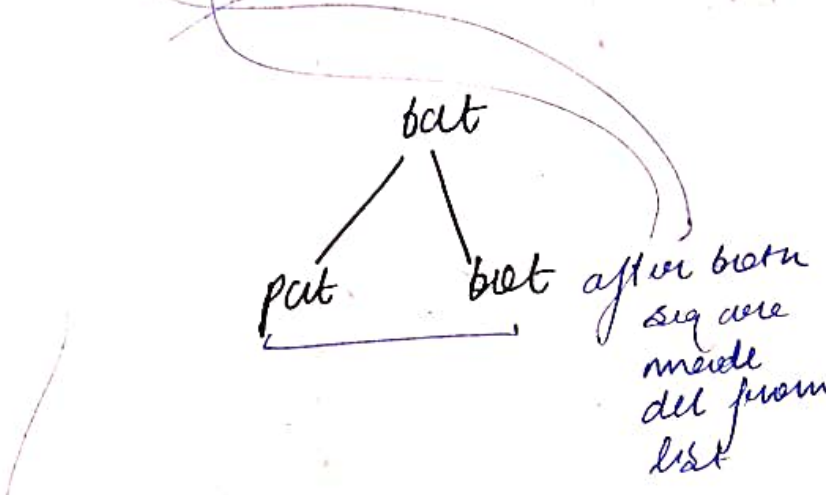 bat
pat bot after both
seq are
made
del from
list